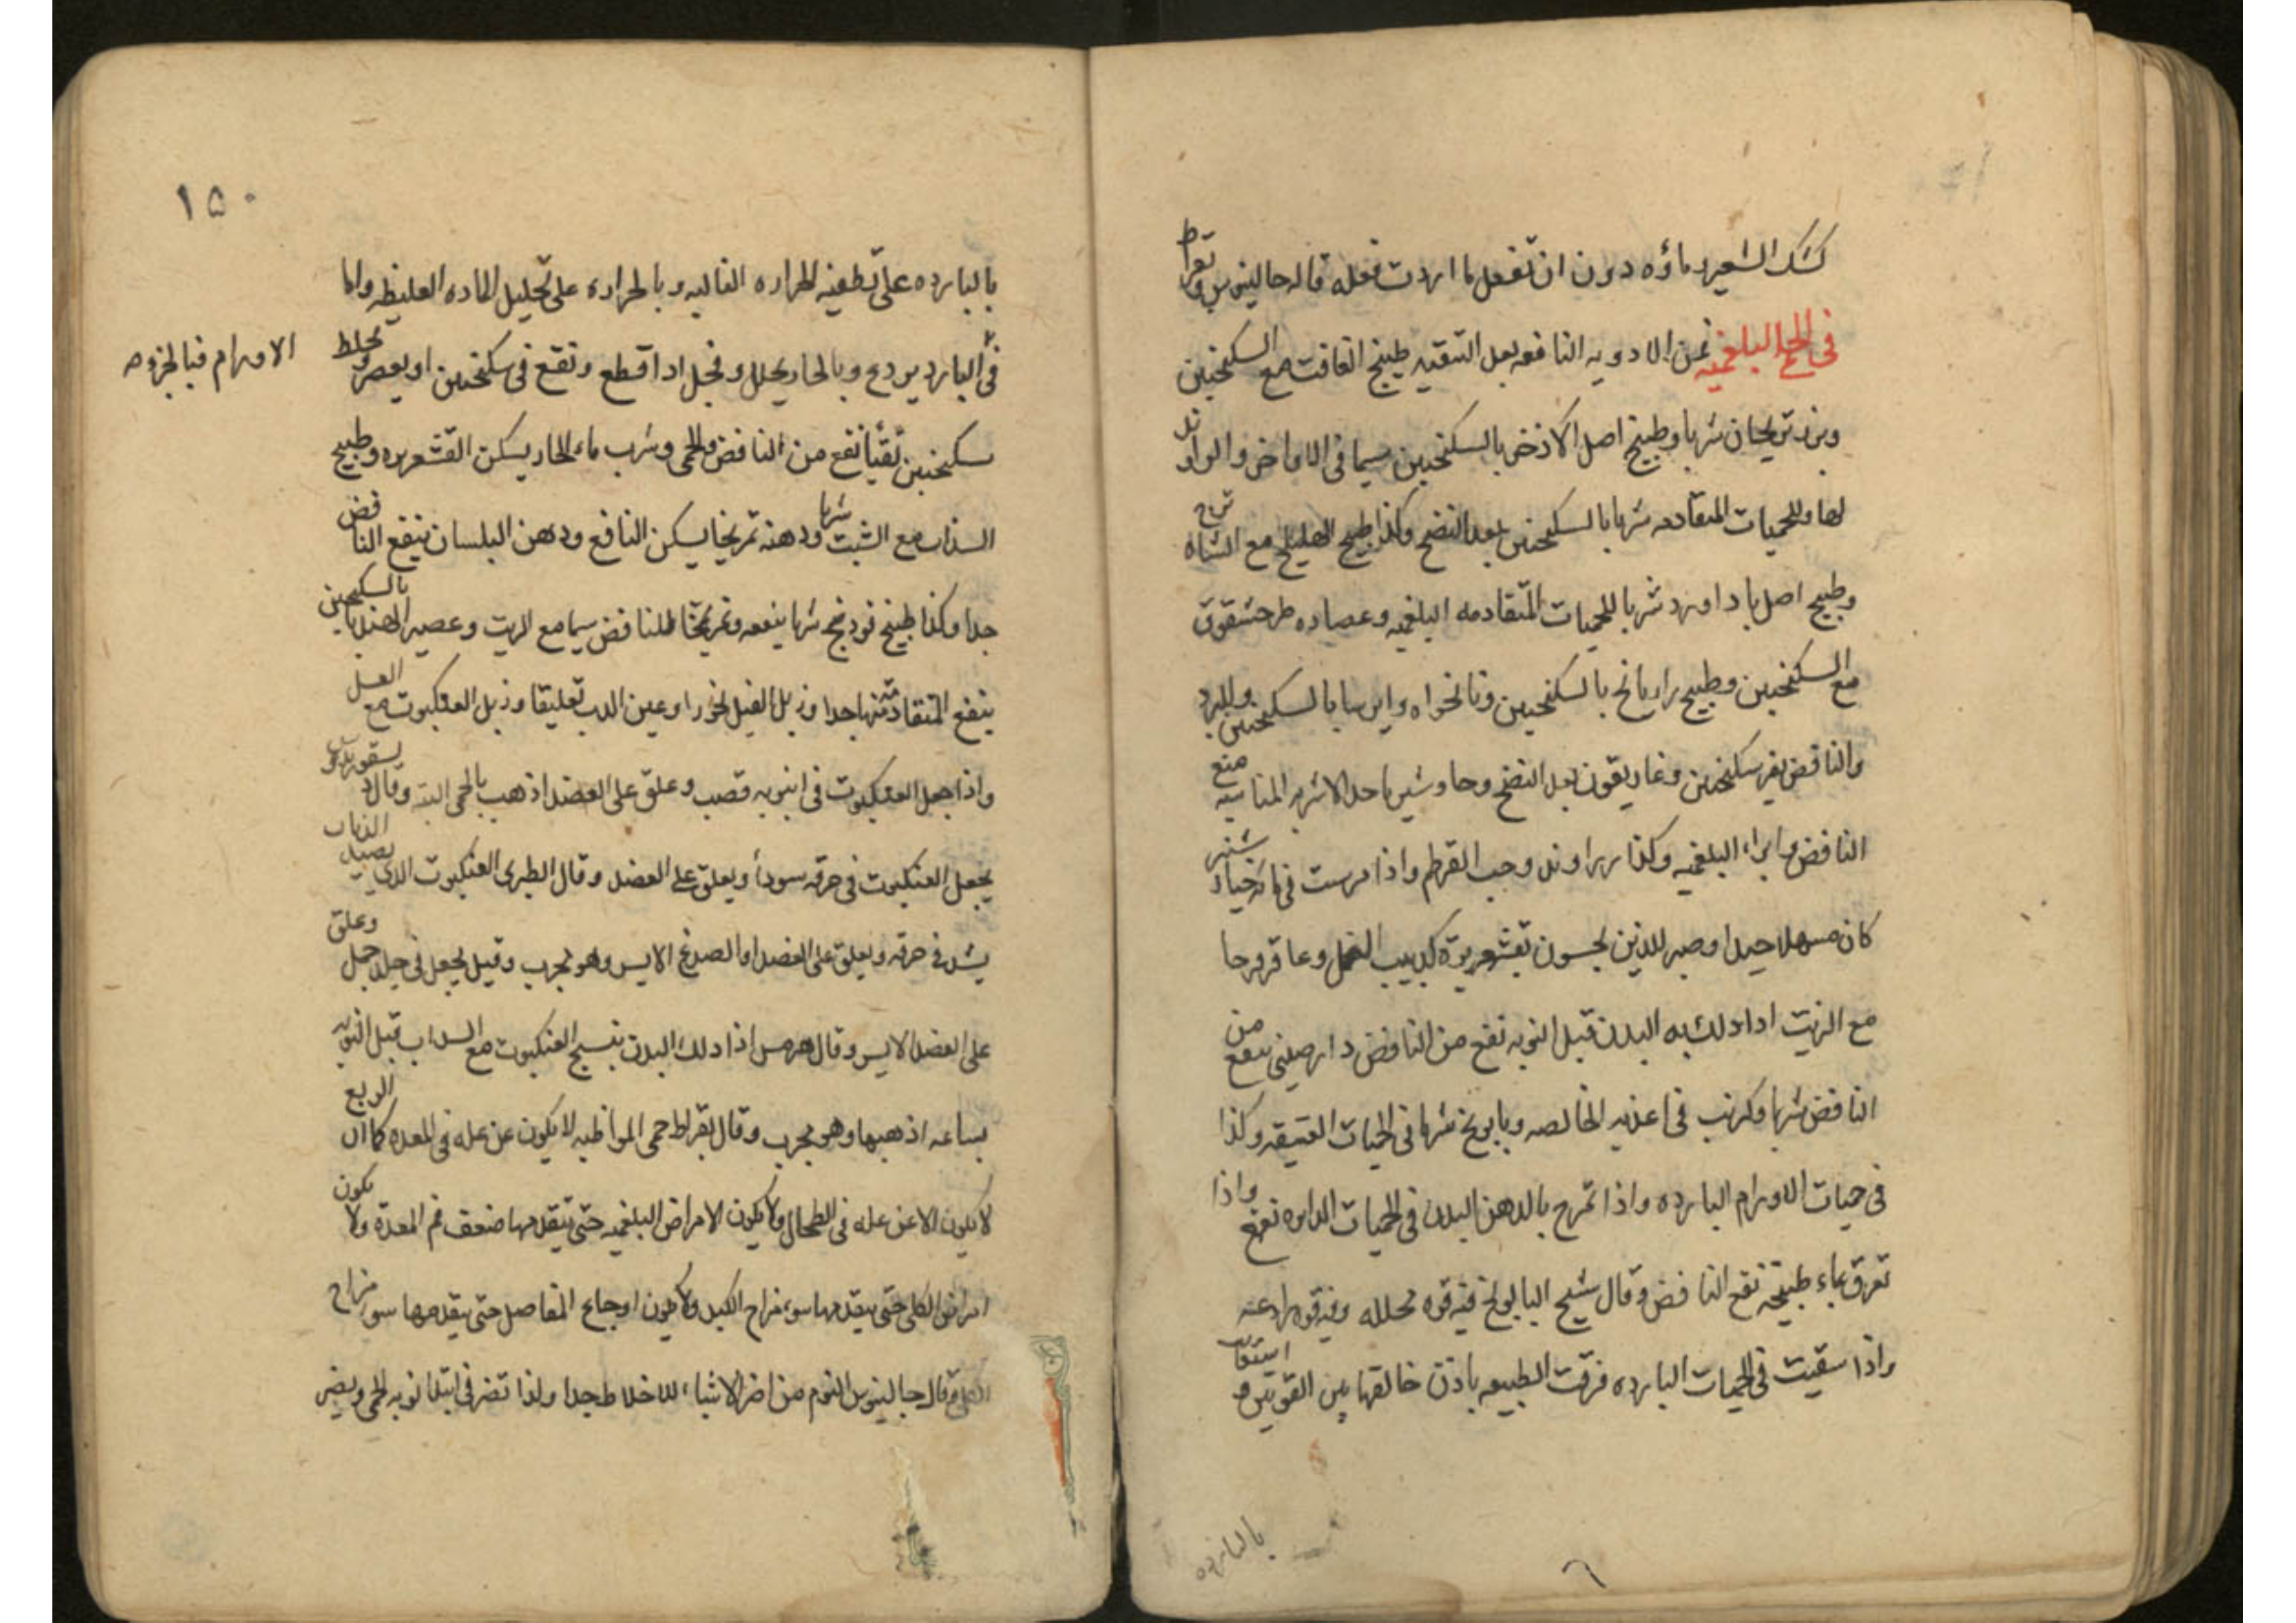 كشك الشعير وماؤه دون ان تفعل ما اردت فعله قاله جالينوس وبقراط
في الحمى البلغميه فمن الادويه النافعه بعد التنقيه طبيخ الغافت مع السكنجبين
وبزر شربا وطبيخ اصل الاذخر بالسكنجبين سيما في الاواخر والراوند
لها وللحميات المتقادمه شربا بالسكنجبين بعد النضج وكذا طبيخ الهليلج مع الشاهترج
وطبيخ اصل باداورد شربا للحميات المتقادمه البلغميه وعصاره طرحشقوق
مع السكنجبين وطبيخ رازيانج بالسكنجبين ونانخواه وايرسا بالسكنجبين وللبرد
والنافض سكنجبين وغاريقون بعد النضج وجاوشير باحد الاشربه المناسبه منع
النافض وابراء البلغميه وكذا زراوند وحب القرطم واذا مرست في ماء خيار شنبر
كان مسهلا جيدا وصبر للذين يحسون بقشعريرة كدبيب النمل وعاقرقرحا
مع الزيت اذا دلك به البدن قبل النوبه نفع من النافض دارصيني ينفع من
النافض شربا وكرنب في اغذيه الخالصه وبابونج شربا في الحميات العتيقه وكذا
في حميات الاورام البارده واذا تمرخ بالدهن البدن في الحميات الدايره نفع واذا
تعرق بماء طبيخه نفع النافض وقال شيخ البابونج فيه قوه محلله وفيه قوه رادعه
واذا سقيت في الحميات البارده فرقت الطبيعه باذن خالقها بين القوتين
بالبارده
١٥٠
بالبارده على تطفيه الحراره الغاليه وبالحراره على تحليل الماده الغليظه واما
في البارد يردع وبالحار يحلل وفجل اذا قطع ونقع في سكنجبين او يعصر ويخلط
الاورام فبالجزوه
سكنجبين تقيأ نفع من النافض والحمى وشرب ماء الحار يسكن القشعريره وطبيخ
السذاب مع الشبت شربا ودهنه تمريخا يسكن النافع ودهن البلسان ينفع النافض
جدا وكذا طبيخ فودنج شربا ينفعه وتمريخا للنافض سيما مع الزيت وعصير الهندبا بالسكنجبين
ينفع المتقادمه منها جدا وزبل الفيل بخورا وعين الدب تعليقا وزبل العنكبوت مع العسل
واذا جعل العنكبوت في انبوبه قصب وعلق على العضد اذهب بالحمى البته وقال ديسقوريدوس
يجعل العنكبوت في خرقه سودأ ويعلق على العضد وقال الطبري العنكبوت الذي يصيد الذباب
يشد في خرقه ويعلق على العضد او الصدغ الايسر وهو مجرب وقيل يجعل في جلد جمل وعلق
على العضد الايسر وقال هرمس اذا دلك البدن بنسج العنكبوت مع السداب قبل النوبه
بساعه اذهبها وهو مجرب وقال بقراط حمى المواظبه لا يكون عن عله في المعده كما ان الربع
لا يكون الا عن عله في الطحال ولا يكون الامراض البلغميه حتى يتقدمها ضعف فم المعدة ولا يكون
امراض الكلى حتى يتقدمها سوء مزاج الكبد ولا يكون اوجاع المفاصل حتى يتقدمها سو مزاج
الكلى وقال جالينوس النوم من اضر الاشياء للاخلاط جدا ولذا تضر في ابتدا نوبه الحمى ويضر